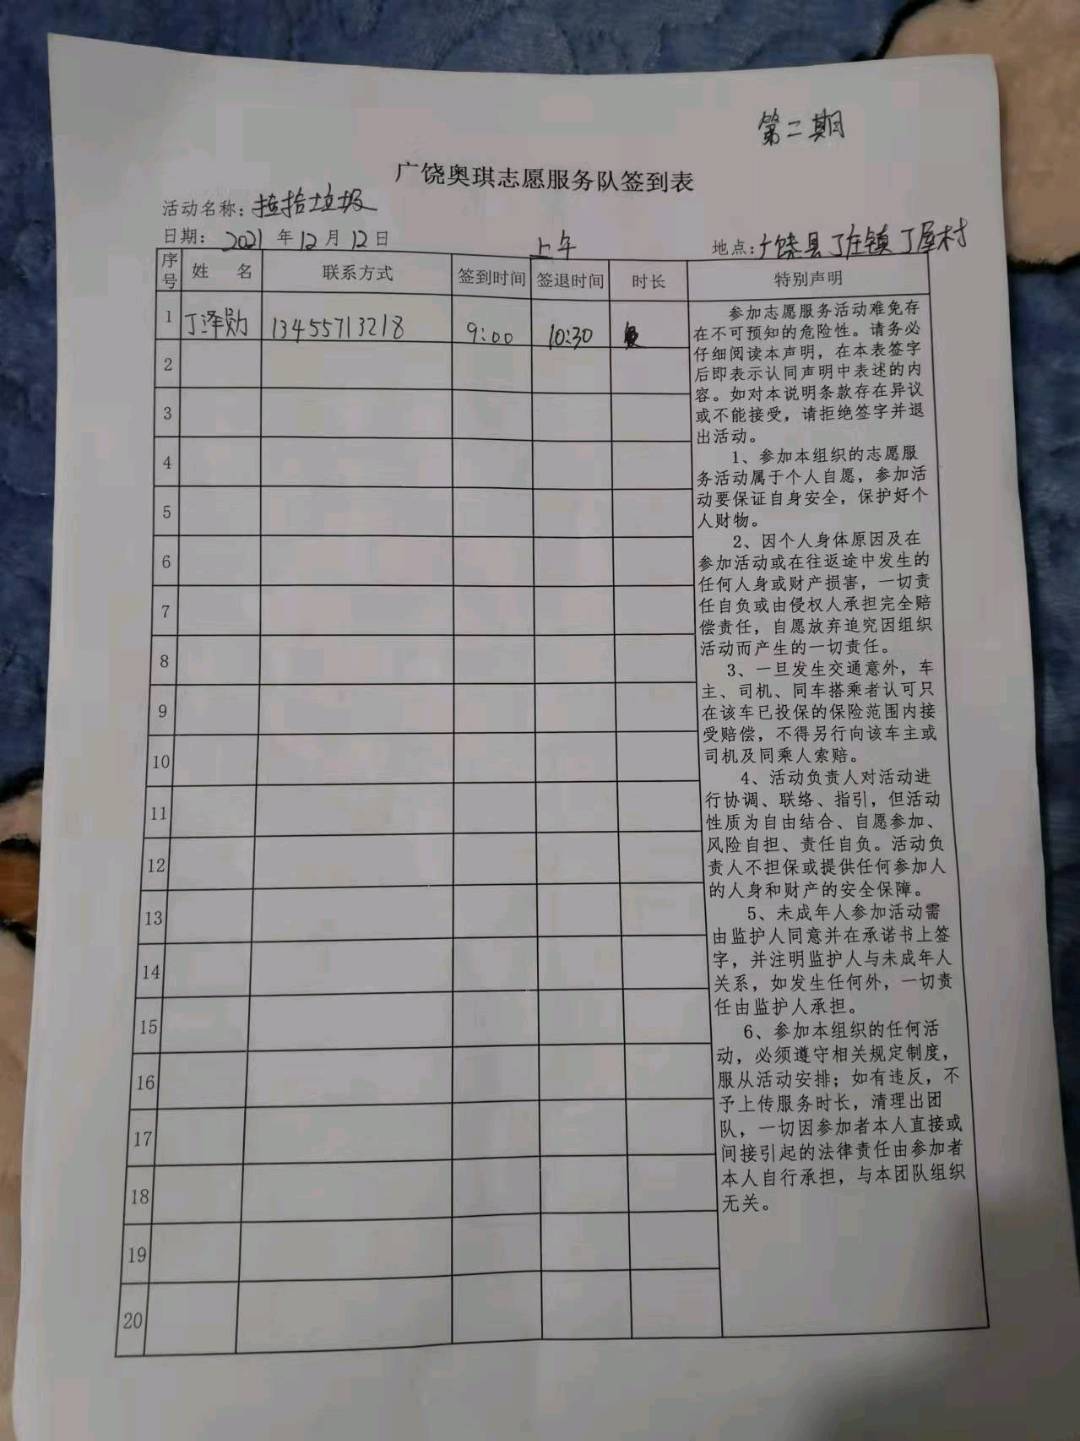 第二期
广饶奥琪志愿服务队签到表
活动名称：捡拾垃圾
日期：2021年12月12日 上午 地点：广饶县丁庄镇丁屋村
序号 姓 名 联系方式 签到时间 签退时间 时长 特别声明
1 丁泽勋 13455713218 9:00 10:30
2
3
4
5
6
7
8
9
10
11
12
13
14
15
16
17
18
19
20
参加志愿服务活动难免存
在不可预知的危险性。请务必
仔细阅读本声明，在本表签字
后即表示认同声明中表述的内
容。如对本说明条款存在异议
或不能接受，请拒绝签字并退
出活动。
1、参加本组织的志愿服
务活动属于个人自愿，参加活
动要保证自身安全，保护好个
人财物。
2、因个人身体原因及在
参加活动或在往返途中发生的
任何人身或财产损害，一切责
任自负或由侵权人承担完全赔
偿责任，自愿放弃追究因组织
活动而产生的一切责任。
3、一旦发生交通意外，车
主、司机、同车搭乘者认可只
在该车已投保的保险范围内接
受赔偿，不得另行向该车主或
司机及同乘人索赔。
4、活动负责人对活动进
行协调、联络、指引，但活动
性质为自由结合、自愿参加、
风险自担、责任自负。活动负
责人不担保或提供任何参加人
的人身和财产的安全保障。
5、未成年人参加活动需
由监护人同意并在承诺书上签
字，并注明监护人与未成年人
关系，如发生任何外，一切责
任由监护人承担。
6、参加本组织的任何活
动，必须遵守相关规定制度，
服从活动安排；如有违反，不
予上传服务时长，清理出团
队，一切因参加者本人直接或
间接引起的法律责任由参加者
本人自行承担，与本团队组织
无关。